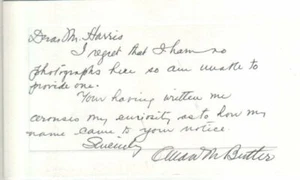 Dear Mr. Harris
I regret that I have no
photographs here so am unable to
provide one.
Your having written me
arouses my curiosity as to how my
name came to your notice
Sincerely
Allan M Butler